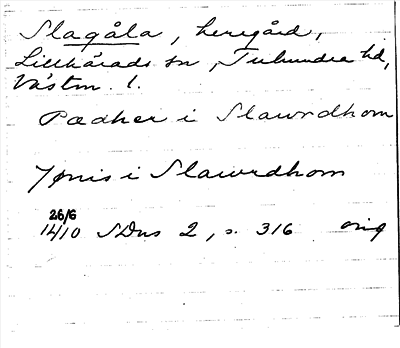 Slagåla, herregård,
Lillhärads sn, Tuhundra hd,
Västm. l.
Pædher i Slawrdhom
Jønis i Slawrdhom
26/6
1410 SDns 2, s. 316 orig